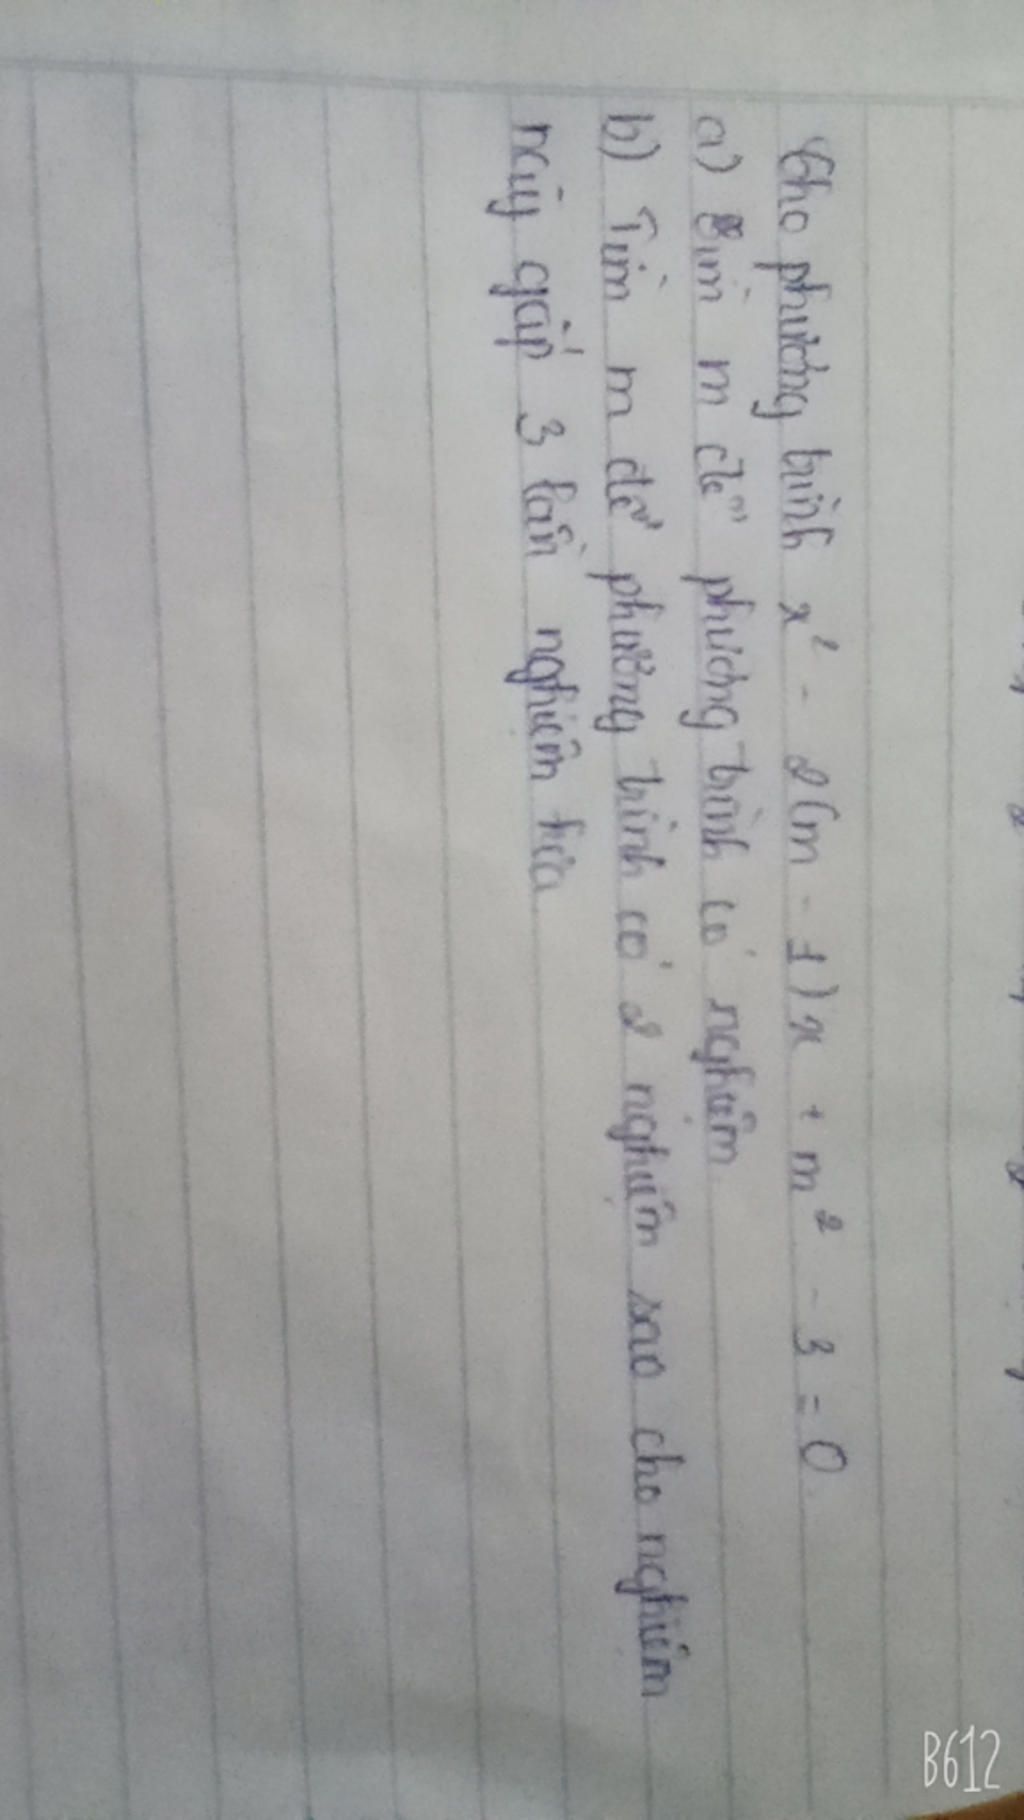 Cho phương trình x² - 2(m - 1)x + m² - 3 = 0.
a) Tìm m để phương trình có nghiệm
b) Tìm m để phương trình có 2 nghiệm sao cho nghiệm
này gấp 3 lần nghiệm kia
B612